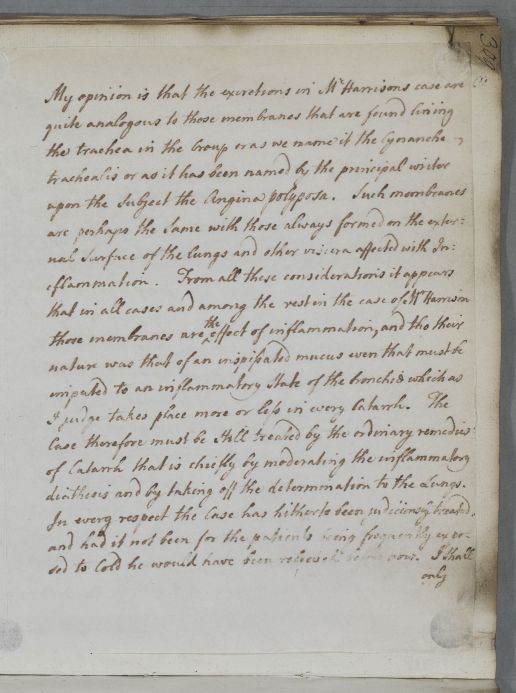 309
My opinion is that the excretions in Mr Harrisons case are
quite analogous to those membranes that are found lining
the trachea in the Croup or as we name it the Cynanche
trachealis or as it has been named by the principal writer
upon the Subject the Angina polyposa. Such membranes
are perhaps the same with those always formed on the exter=
nal Surface of the lungs and other viscera affected with In=
flammation. From all these considerations it appears
that in all cases and among the rest in the case of Mr Harrison
those membranes are the effect of inflammation, and tho their
nature was that of an inspissated mucus even that must be
imputed to an inflammatory State of the bronchiæ which as
I judge takes place more or less in every Catarrh. The
Case therefore must be Still treated by the ordinary remedies
of Catarrh that is chiefly by moderating the inflammatory
diathesis and by taking off the determination to the Lungs.
In every respect the Case has hitherto been judiciously treated,
and had it not been for the patients being frequently expo=
sed to Cold he would have been relieved before now. I shall
only